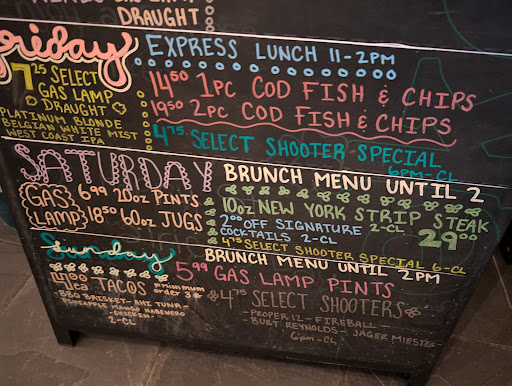 DRAUGHT
Friday
EXPRESS LUNCH 11-2PM
7.25 SELECT
GAS LAMP
DRAUGHT
PLATINUM BLONDE
BELGIAN WHITE MIST
WEST COAST IPA
14.50 1PC COD FISH & CHIPS
19.50 2PC COD FISH & CHIPS
4.75 SELECT SHOOTER SPECIAL
6PM-CL
SATURDAY
BRUNCH MENU UNTIL 2
GAS LAMP
6.99 20oz PINTS
18.50 60oz JUGS
10oz NEW YORK STRIP STEAK
2-CL 29.00
2.00 OFF SIGNATURE
COCKTAILS 2-CL
4.75 SELECT SHOOTER SPECIAL 6-CL
Sunday
BRUNCH MENU UNTIL 2PM
TACOS
MINIMUM
ORDER 3
BBQ BRISKET-AHI TUNA
PINEAPPLE MANGO HABENERO
CHICKEN
2-CL
5.99 GAS LAMP PINTS
4.75 SELECT SHOOTERS
-PROPER 12 - FIREBALL-
-BURT REYNOLDS- JAGER MIESTER-
6PM-CL